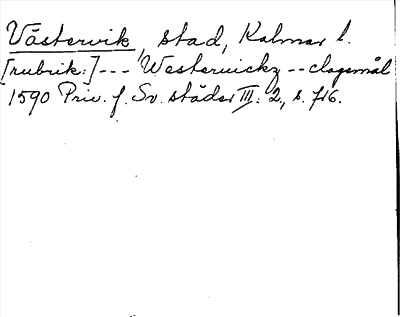 Västervik, stad, Kalmar l.
[rubrik:] --- Westernickz -- clagemål
1590 Priv. f. Sv. städer III: 2, s. 716.